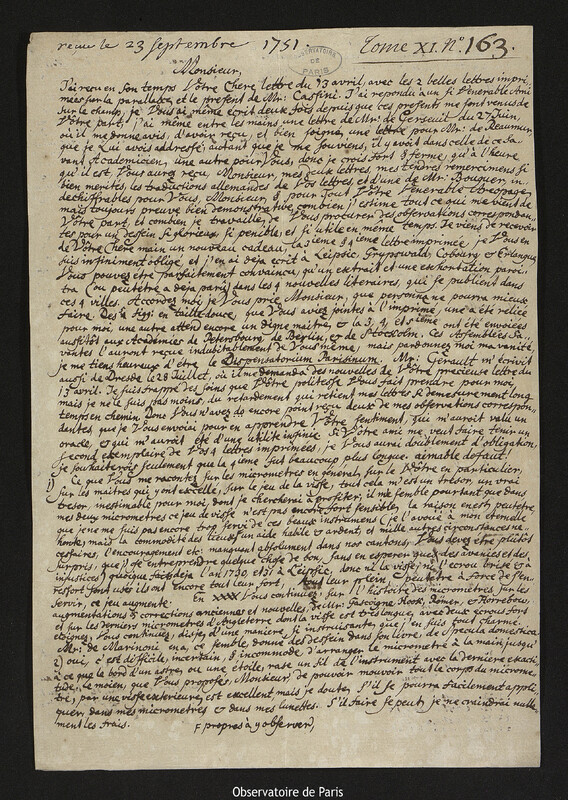 recue le 23 septembre 1751. Tome XI. N.° 163.
OBSERVATOIRE DE PARIS
Monsieur,
J'ai reçu en son temps Vôtre Chere lettre du 13 avril, avec les 2 belles lettres impri-
mées sur la parallaxe, et le present de Mr. Cassini. J'ai repondu à un si Venerable Ami
sur le champ, je Vous ai même ecrit deux fois depuis que ces presents me sont venus de
Vôtre part; j'ai même entre les mains une lettre de Mr. de Gerseuil du 27 Juin,
où il me donne avis, d'avoir reçu, et bien soigné, une lettre pour Mr. de Reaumur,
que je Lui avois addressée; autant que je me souviens, il y avoit dans celle de ce Sa-
vant Academicien, une autre pour Vous, donc je crois fort & ferme, qu'à l'heure
qu'il est, Vous aurez reçu, Monsieur, mes deux lettres, mes tendres remercimens si
bien merités, les traductions allemandes de Vos lettres et d'une de Mr. Bouguer in-
dechiffrables pour Vous, Monsieur, & pour tout Vôtre Venerable Areopage,
mais toujours preuve bien demonstrative, combien j'estime tout ce qui me vient de
Vôtre part, et combien je travaille, de Vous procurer des observations correspondan-
tes pour un dessein si glorieux, si penible, et si utile en même temps. Je viens de recevoir
de Vôtre Chere main un nouveau cadeau, la 3ieme & 4 ieme lettre imprimée, je Vous en
suis infiniment obligé, et j'en ai deja ecrit à Leipsic, Grypswald, Cobourg & Erlangue,
Vous pouvez etre parfaitement convaincu, qu'un extrait et une exhortation paroi-
tra (ou peutêtre a deja paru) dans les 4 nouvelles literaires, que je publie dans
ces 4 villes. Accordez moi je Vous prie, Monsieur, que personne ne pourra mieux
faire. Des 2 figg: en taille douce, que Vous aviez jointes à l'imprimé, une a été reliée
pour moi, une autre attend encore un digne maitre, & la 3, 4, et 5ieme ont été envoiées
aussitôt aux Academies de Petersbourg, de Berlin, & de Stockolm. Ces Assemblées Sa-
vantes l'auront reçue indubitablement de Vous même, mais pardonnez moi ma vanité,
je me tiens heureux d'être le Dispensatorium Parisinum. Mr. Gerault m'ecrivit
aussi de Dresde le 28 Juillet, où il me demanda des nouvelles de Vôtre précieuse lettre du
13 avril. Je suis frappé des soins que Vôtre politesse Vous fait prendre pour moi,
mais je ne le suis pas moins, du retardement qui retient mes lettres si demesurement long
temps en chemin. Donc Vous n'avez do encore point reçu deux de mes observations correspon-
dentes, que je Vous envoiai pour en apprendre Vôtre sentiment, qui m'auroit valu un
oracle, & qui m'auroit été d'une utilité infinie. Si Vôtre ami me veut faire tenir un
second exemplaire de Vos 4 lettres imprimées, je Vous aurai doublement d'obligation,
je souhaiterois seulement que la 4ieme fut beaucoup plus longue. aimable defaut!
1) Ce que Vous me racontez sur les micrometres en general, sur le Vôtre en particulier,
sur les maitres qui y ont excellé, sur le jeu de la visse, tout cela m'est un tresor, un vrai
tresor, inestimable pour moi, dont je chercherai à profiter; il me semble pourtant que dans
mes deux micrometres ce jeu de visse n'est pas encore fort sensible, la raison en est peutetre,
que je ne me suis pas encore trop servi de ces beaux instrumens (je l'avoue à mon eternelle
honte, mais la commodité des lieux, un aide habile & ardent, et mille autres circonstances ne-
cessaires, l'encouragement etc: manquent absolument dans nos cantons; Vous devez être plutôt
surpris, que j'ose entreprendre quelque chose de bon, sans en esperer que des avanies et des
injustices) quoique faits deja l'an 1730, et 31 à Leipsic; donc ni la visse, ni l'ecrou brisé & à
ressort sont usés ils ont encore tout leur fort, tout leur plein, peutetre à force de s'en
servir, ce jeu augmente. En Vous continuez sur l'histoire des micrometres sur les
augmentations & corrections anciennes et nouvelles, de Mr. Gascoigne, Hook, Römer, & Horrebow,
et sur les derniers micrometres d'Angleterre dont la visse est tres longue, avec deux ecrous fort
eloignés, Vous continuez, disje, d'une maniere si instructante, que j'en suis tout charmé.
Mr. de Marinoni en a, ce semble, donné des dessein dans son livre, de Specula domestica.
2) oui, c'est difficile, incertain, & incommode d'arranger le micrometre à la main jusqu'
à ce que le bord d'un astre ou une etoile, rase un fil de l'instrument avec la derniere exacti-
tude; le moien, que Vous proposés, Monsieur, de pouvoir mouvoir tout le corps du microme-
tre, par une visse exterieure, est excellent mais je doute, s'il se pourra facilement appli-
quer, dans mes micrometres & dans mes lunettes. S'il faire se peut, je ne craindrai nulle-
ment les frais. F propres à y observer,
Observatoire de Paris